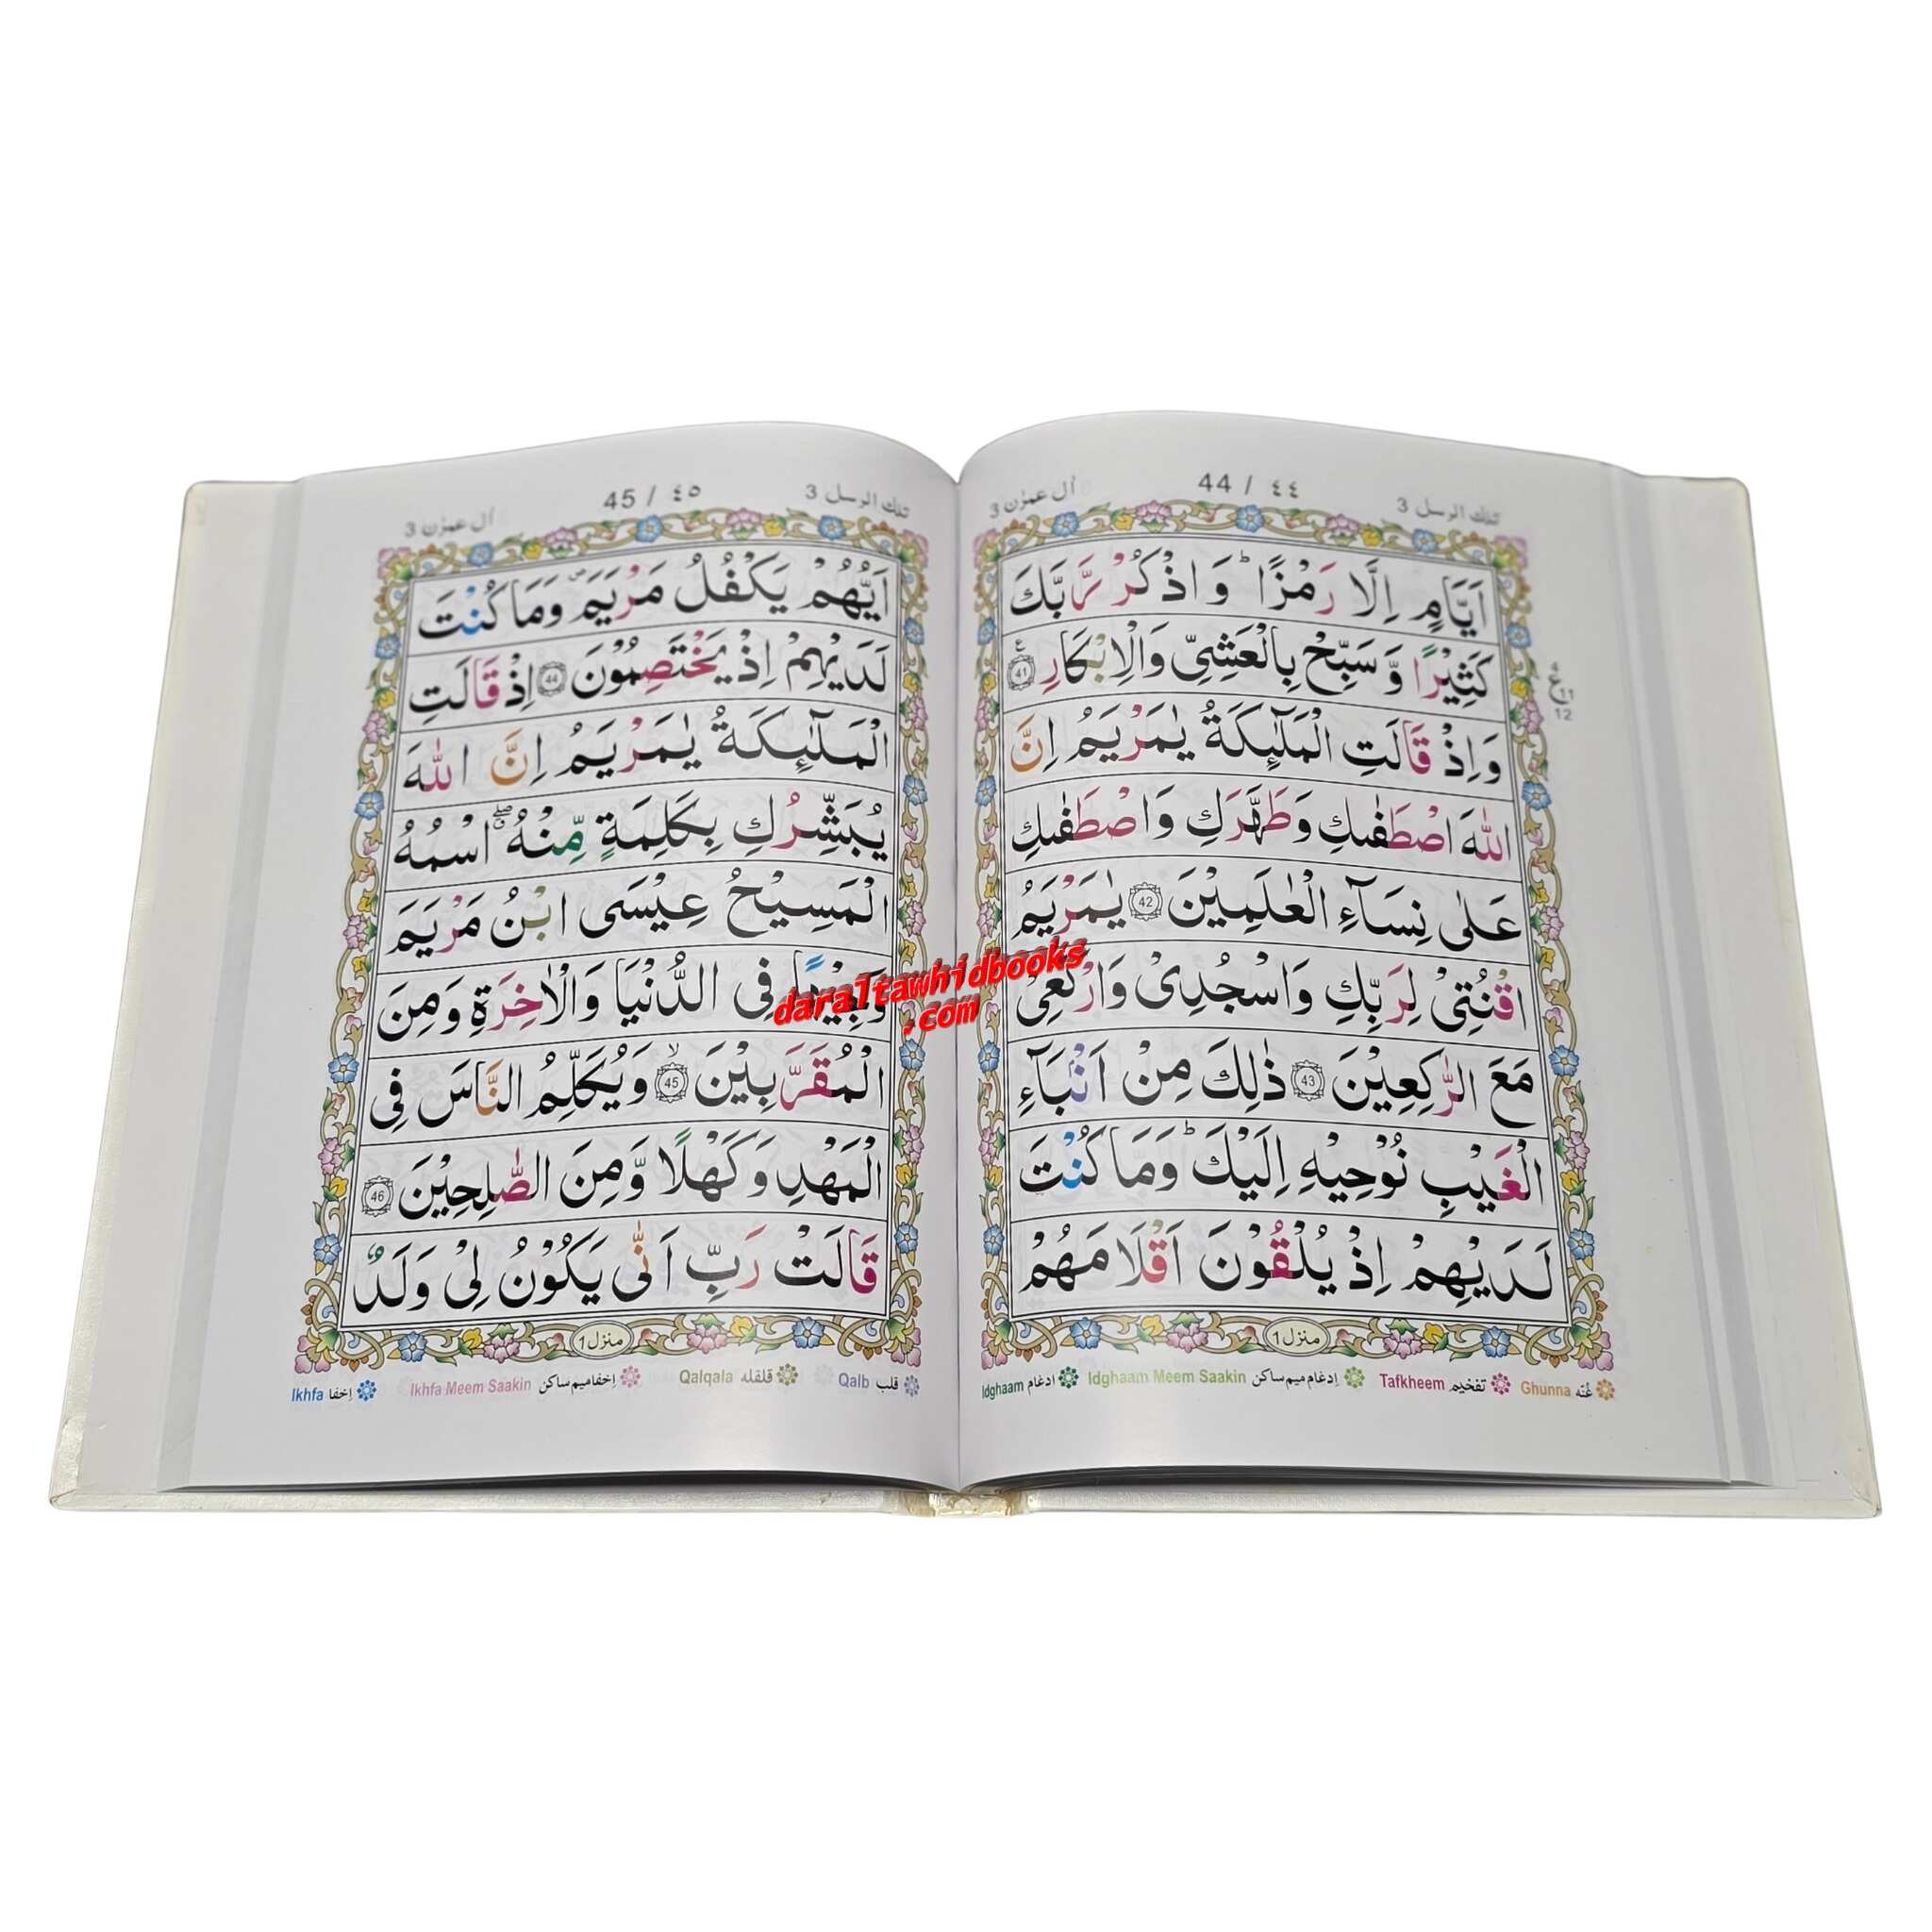 اٰل عمرٰن 3
44 / ٤٤
تلك الرسل 3
اَيَّامٍ اِلَّا رَمْزًا ؕ وَ اذْكُرْ رَّبَّكَ
كَثِيْرًا وَّ سَبِّحْ بِالْعَشِيِّ وَالْاِبْكَارِ 41 ع
4
ع 11
12
وَ اِذْ قَالَتِ الْمَلٰٓئِكَةُ يٰمَرْيَمُ اِنَّ
اللّٰهَ اصْطَفٰىكِ وَطَهَّرَكِ وَ اصْطَفٰىكِ
عَلٰى نِسَآءِ الْعٰلَمِيْنَ 42 يٰمَرْيَمُ
اقْنُتِيْ لِرَبِّكِ وَاسْجُدِيْ وَارْكَعِيْ
مَعَ الرّٰكِعِيْنَ 43 ذٰلِكَ مِنْ اَنْۢبَآءِ
الْغَيْبِ نُوْحِيْهِ اِلَيْكَ ؕ وَمَا كُنْتَ
لَدَيْهِمْ اِذْ يُلْقُوْنَ اَقْلَامَهُمْ
منزل 1
Ghunna غنّه
Tafkheem تفخيم
Idghaam Meem Saakin اِدغام ميم ساكن
Idghaam ادغام
اٰل عمرٰن 3
45 / ٤٥
تلك الرسل 3
اَيُّهُمْ يَكْفُلُ مَرْيَمَ ۪ وَمَا كُنْتَ
لَدَيْهِمْ اِذْ يَخْتَصِمُوْنَ 44 اِذْ قَالَتِ
الْمَلٰٓئِكَةُ يٰمَرْيَمُ اِنَّ اللّٰهَ
يُبَشِّرُكِ بِكَلِمَةٍ مِّنْهُ ۖ اسْمُهُ
الْمَسِيْحُ عِيْسَى ابْنُ مَرْيَمَ
وَجِيْهًا فِي الدُّنْيَا وَالْاٰخِرَةِ وَمِنَ
الْمُقَرَّبِيْنَ ۙ 45 وَيُكَلِّمُ النَّاسَ فِي
الْمَهْدِ وَكَهْلًا وَّمِنَ الصّٰلِحِيْنَ 46
قَالَتْ رَبِّ اَنّٰى يَكُوْنُ لِيْ وَلَدٌ
منزل 1
Qalb قلب
Qalqala قلقله
Ikhfa Meem Saakin اِخفا ميم ساكن
Ikhfa اِخفا
daraltawhidbooks
.com